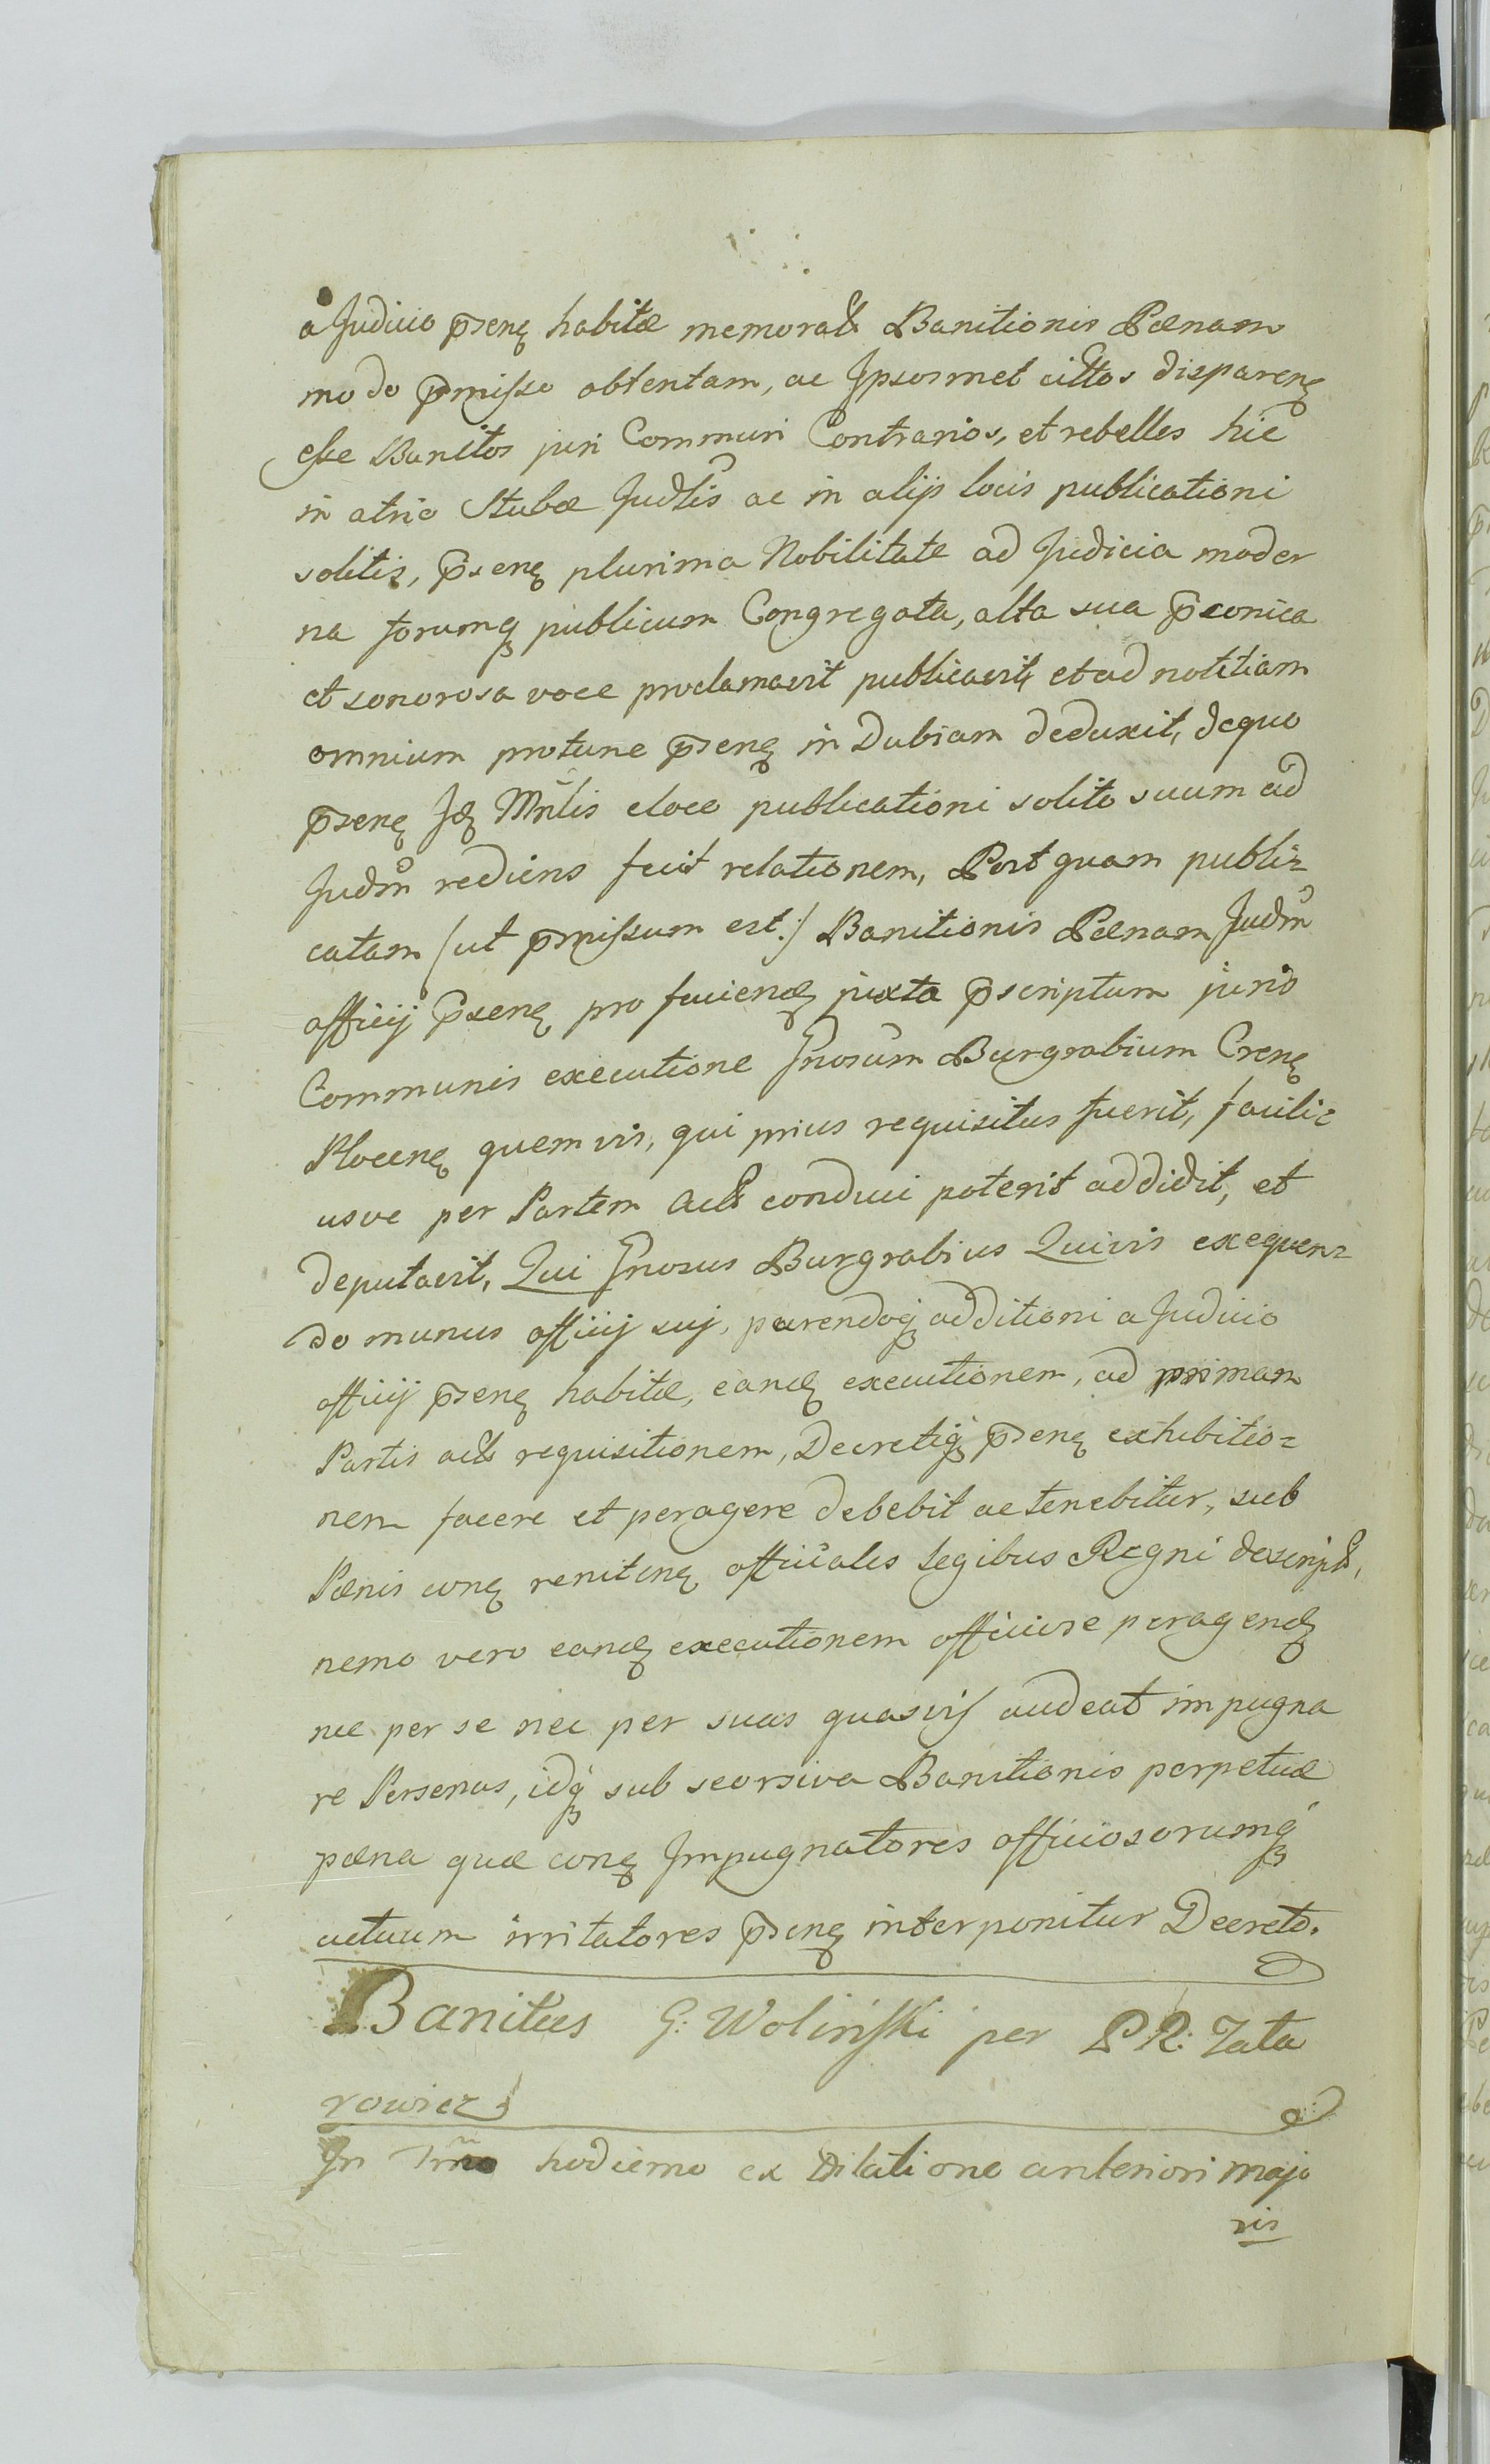 a Judicio p̄senꝫ habitæ memorat Banitionis Pœnam
modo p̄misso obtentam, ac Ipsosmet cittos disparenꝫ
esse Banitos juri Communi Contrarios, et rebelles hic
in atrio Stubæ Judlis ac in alijs locis publicationi
solitis, p̄senꝫ plurima Nobilitate ad Judicia moder
na forumqꝫ publicum Congregata, alta sua p̄conica
et sonorosa voce proclamavit publicavit, et ad notitiam
omnium protunc p̄senꝫ in Dubiam deduxit, dequo
p̄senꝫ Idꝫ Mnlis eloco publicationi solito suum ad
Judm rediens fecit relationem, Post quam publi=
catam /ut p̄missum est:/ Banitionis Pœnam Judm
officij p̄senꝫ pro faciendꝫ juxta p̄scriptum juris
Communis executione Gnosum Burgrabium Crenꝫ
Plocenꝫ quemvis, qui prius requisitus fuerit, facili=
usve per Partem Act conduci poterit addidit, et
deputavit, Qui Gnosus Burgrabius Quivis exequen=
do munus officij suj, parendoqꝫ additioni a Judicio
officij p̄senꝫ habitæ, eandꝫ executionem, ad primam
Partis act requisitionem, Decretiqꝫ p̄senꝫ exhibitio=
nem facere et peragere debebit ac tenebitur, sub
Pœnis conꝫ renitenꝫ officiales legibus Regni descript,
nemo vero eandꝫ executionem officiose peragendꝫ
nec per se nec per suas quasvis audeat impugna
re Personas, idqꝫ sub seorsiva Banitionis perpetuæ
pœna quæ conꝫ Impugnatores officiosorumqꝫ
actuum irritatores p̄senꝫ interponitur Decreto.
Banitus G: Woliński per P R: Tata
rowicz
In Tm̃o hodierno ex Dilatione anteriori majo
ris